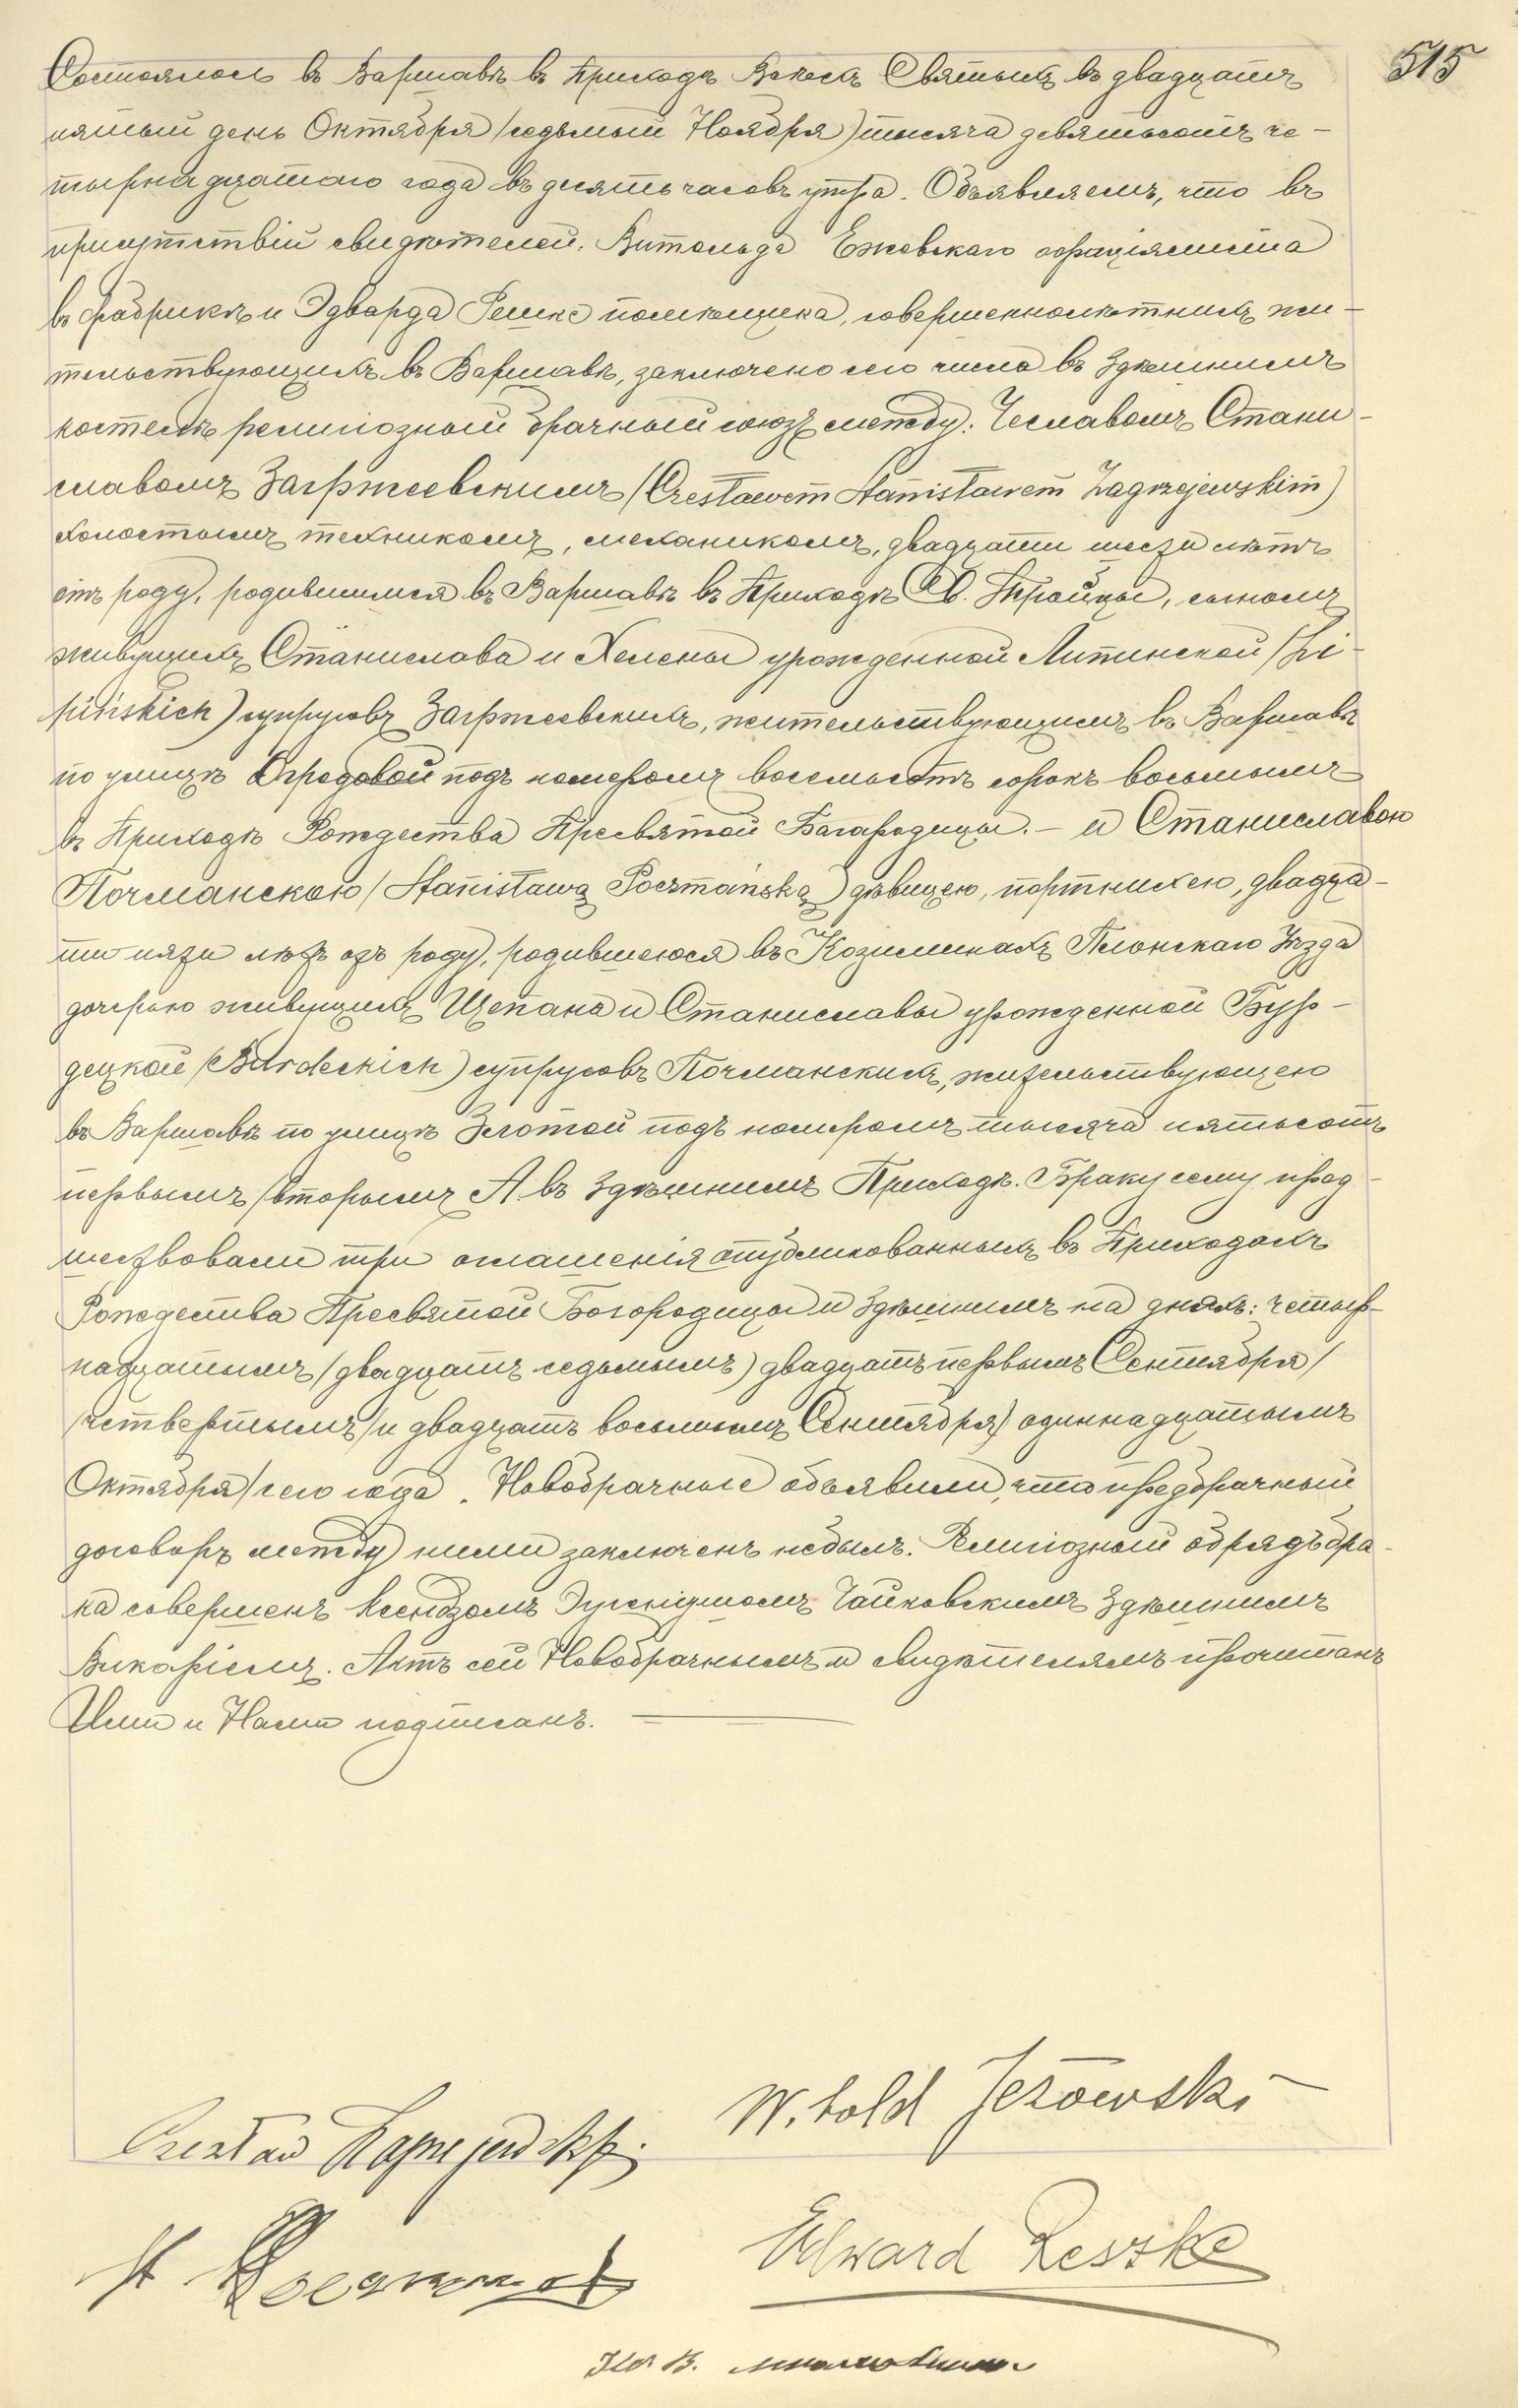 515
Состоялось въ Варшавѣ въ Приходѣ Всѣхъ Святыхъ въ двадцать
пятый день Октября /седьмый Ноября) тысяча девятьсотъ че-
тырнадцатаго года въ десять часовъ утра. Объявляемъ, что въ
присутствіи свидѣтелей, Витольда Ежовскаго
въ фабрикѣ и Эдварда Решке помѣщика, совершеннолѣтнихъ жи-
тельствующихъ въ Варшавѣ, заключено сего числа въ здѣшнемъ
костелѣ религіозный брачный союзъ между: Чеславомъ Стани-
славомъ Загржеевскимъ /Czesławem Stanisławem Zagrzejewskim)
холостымъ техникомъ, механикомъ, двадцати шести лѣтъ
отъ роду, родившимся въ Варшавѣ въ Приходѣ Св. Тройцы, сыномъ
живущихъ Станислава и Хелены урожденной Липинской /Li-
pińskich) супруговъ Загржеевскихъ, жительствующимъ въ Варшавѣ
по улицѣ Огродовой подъ номеромъ восемьсотъ сорокъ восьмымъ
въ Приходѣ Рождества Пресвятой Богородицы. - и Станиславою
Почманскою /Stanisławą Poczmańską) дѣвицею, портнихею, двадца-
ти пяти лѣтъ отъ роду, родившеюся въ Козиминахъ Плонскаго Уѣзда
дочерью живущихъ Щепана и Станиславы урожденной Бур-
децкой /Burdeckich) супруговъ Почманскихъ, жительствующею
въ Варшавѣ по улицѣ Злотой подъ номеромъ тысяча пятьсотъ
первымъ /вторымъ А. въ здѣшнемъ Приходѣ. Браку сему пред-
шествовали три оглашенія опубликованныхъ въ Приходахъ
Рождества Пресвятой Богородицы и здѣшнимъ на дняхъ: четыр-
надцатымъ /двадцать седьмымъ) двадцать первымъ Сентября /
/четвертымъ/ и двадцать восьмымъ Сентября) одиннадцатымъ
Октября/ сего года. Новобрачные объявили, что предбрачный
договоръ между ними заключенъ небылъ. Религіозный обрядъ бра-
ка совершенъ Ксендзомъ Чайковскимъ здѣшнимъ
Викаріемъ. Актъ сей Новобрачнымъ и свидѣтелямъ прочитанъ
Ими и Нами подписанъ.
Witold Jeżowski
Czesław Zagrzejewski
Edward Reszke
St